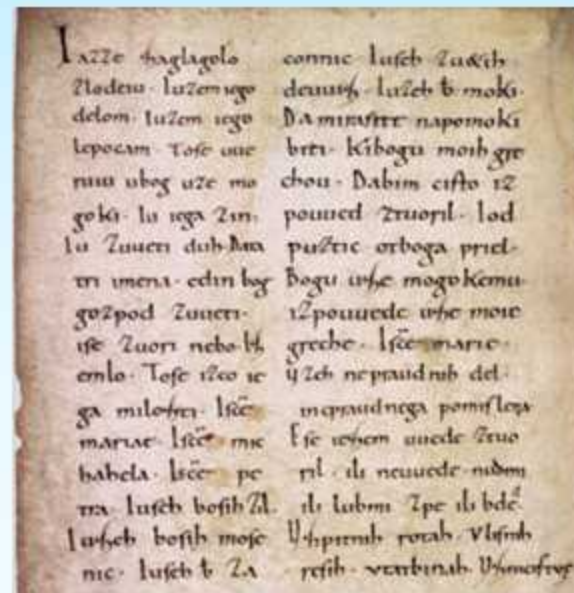 Iazze zaglagolo
zlodeiu. Iuzem iego
delom. Iuzem iego
lepocam. Tose uue
ruiu ubog uze mo
goki. Iu iega zin.
Iu zuueti duh. Data
tri imena. edin bog
gozpod zuueti.
ise zuori nebo. Iz
emlo. Tose izco ie
ga milozti. Isce
mariae. Isce mic
hahela. Isce pe
tra. Iuseh bosih zil.
Iuzeh bosih mose
nic. Iuseh b za
connic. Iuseh zuetih
deuuiz. Iuzeh b moki.
Da mirasite napomoki
biti. Kibogu moih gre
chou. Dabim cisto iz
pouued ztuoril. Iod
puztic otboga priel.
Bogu uze mogokemu.
izpouuede uze moie
greche. Isce marie.
Uzeh nepraudnih del.
inepraudnega pomislela
Ese iezem uuede ztuo
ril. ili neuuede nudmi
ili lubmi zpe ili bde.
Uzpitnih rotah. Ulisnih
resih. Utatbinah.